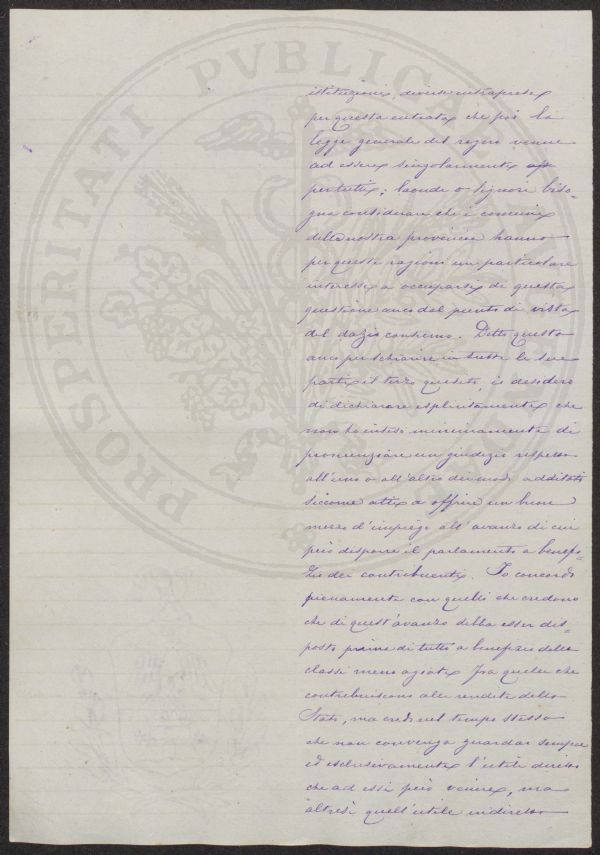 PROSPERITATI PVBLICAE
istituzioni diverse intraprese
per questa entrata che poi la
legge generale del regno venne
ad essere singolarmente ap
pertutti; laonde o Signori biso=
gna considerare che i comuni
della nostra provincia hanno
per queste ragioni un particolare
interesse a occuparsi di questa
questione anco dal punto di vista
del dazio consumo. Detto questo
anco per schiarire in tutte le sue
parti il terzo quesito, io desidero
di dichiarare esplicitamente che
non ho inteso minimamente di
pronunziare un giudizio rispetto
all'uno o all'altro dei modi additati
siccome atti a offrire un buon
mezzo d'impiego all'avanzo di cui
può disporre il parlamento a benefi=
zio dei contribuenti. Io concordo
pienamente con quelli che credono
che di quest'avanzo debba esser dis=
posto prima di tutto a benefizio delle
classi meno agiate fra quelle che
contribuiscono alle rendite dello
Stato, ma credo nel tempo stesso
che non convenga guardar sempre
ed esclusivamente l'utile diretto
che ad essi può venire, ma
altresì quell'utile indiretto